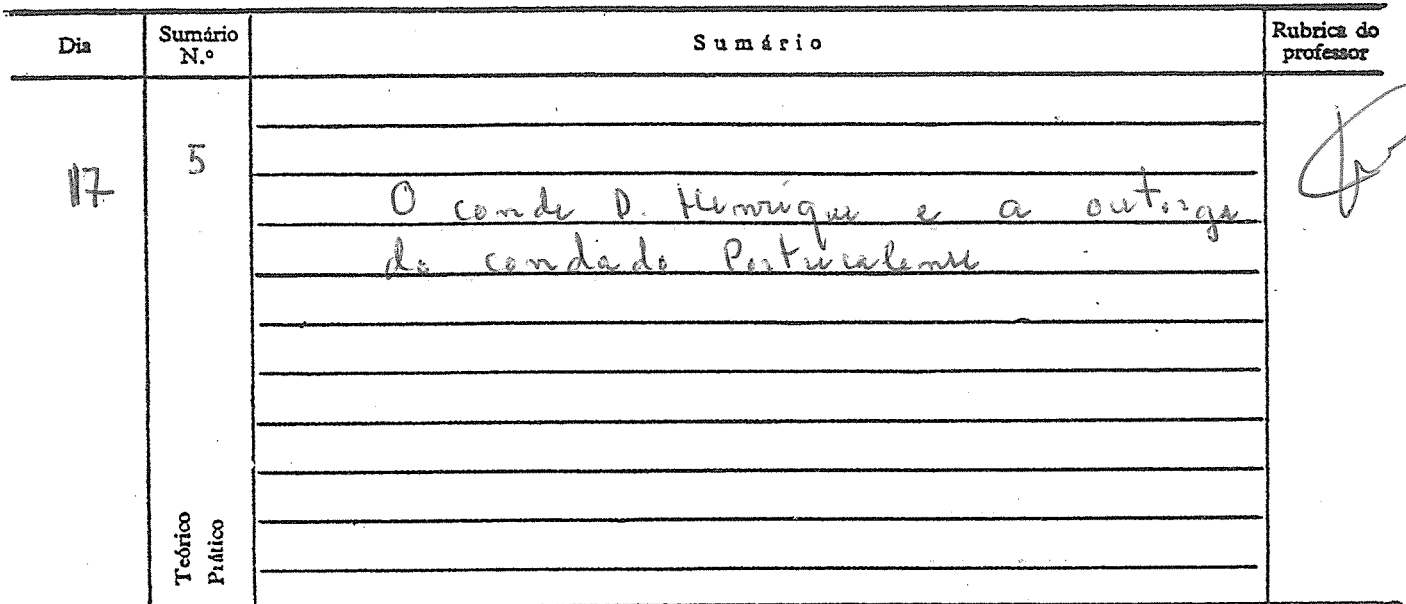 Dia
Sumário N.º
Sumário
Rubrica do professor
17
5
O conde D. Henrique e a outorga
do condado Portucalense.
Teórico
Prático